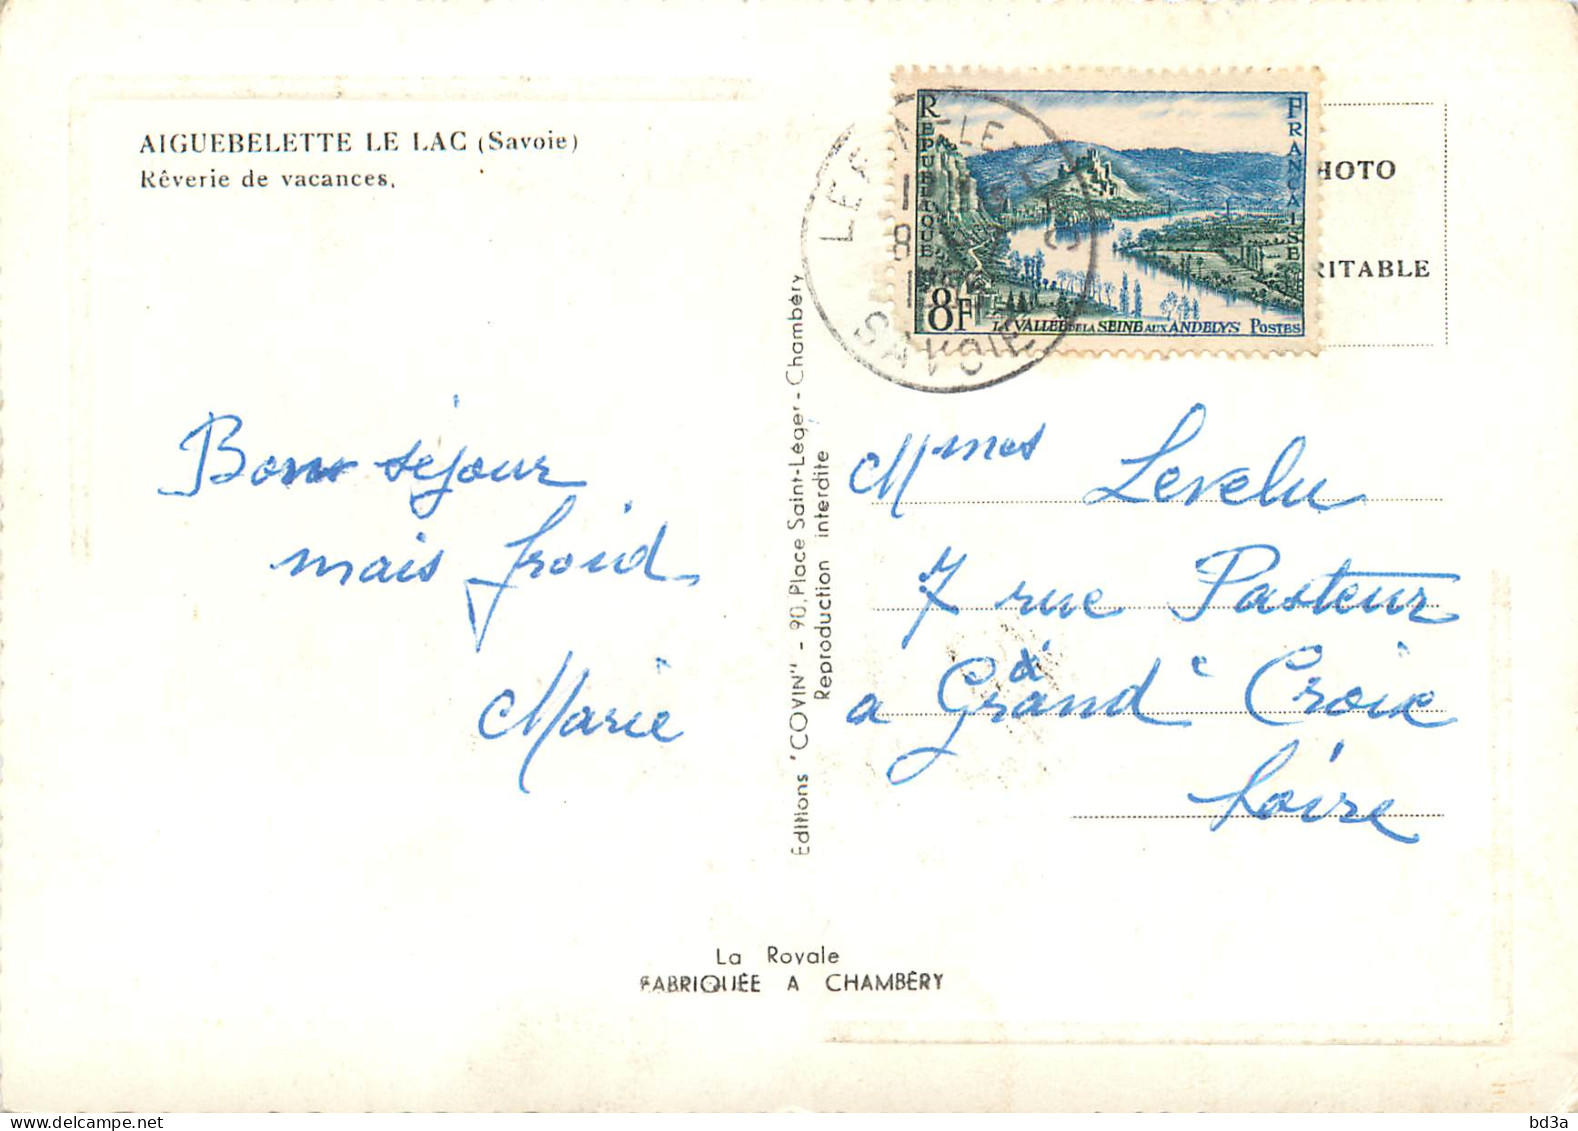 AIGUEBELETTE LE LAC (Savoie)
Rêverie de vacances.
Bon séjour
mais froid
Marie
Editions "COVIN" - 90, Place Saint-Léger - Chambéry
Reproduction interdite
RÉPUBLIQUE
FRANÇAISE
8F
LA VALLÉE DE LA SEINE AUX ANDELYS POSTES
SAVOIE
HOTO
RITABLE
Mmes Levelu
7 rue Pasteur
a Grand' Croix
Loire
La Royale
FABRIQUÉE A CHAMBÉRY
bd3a